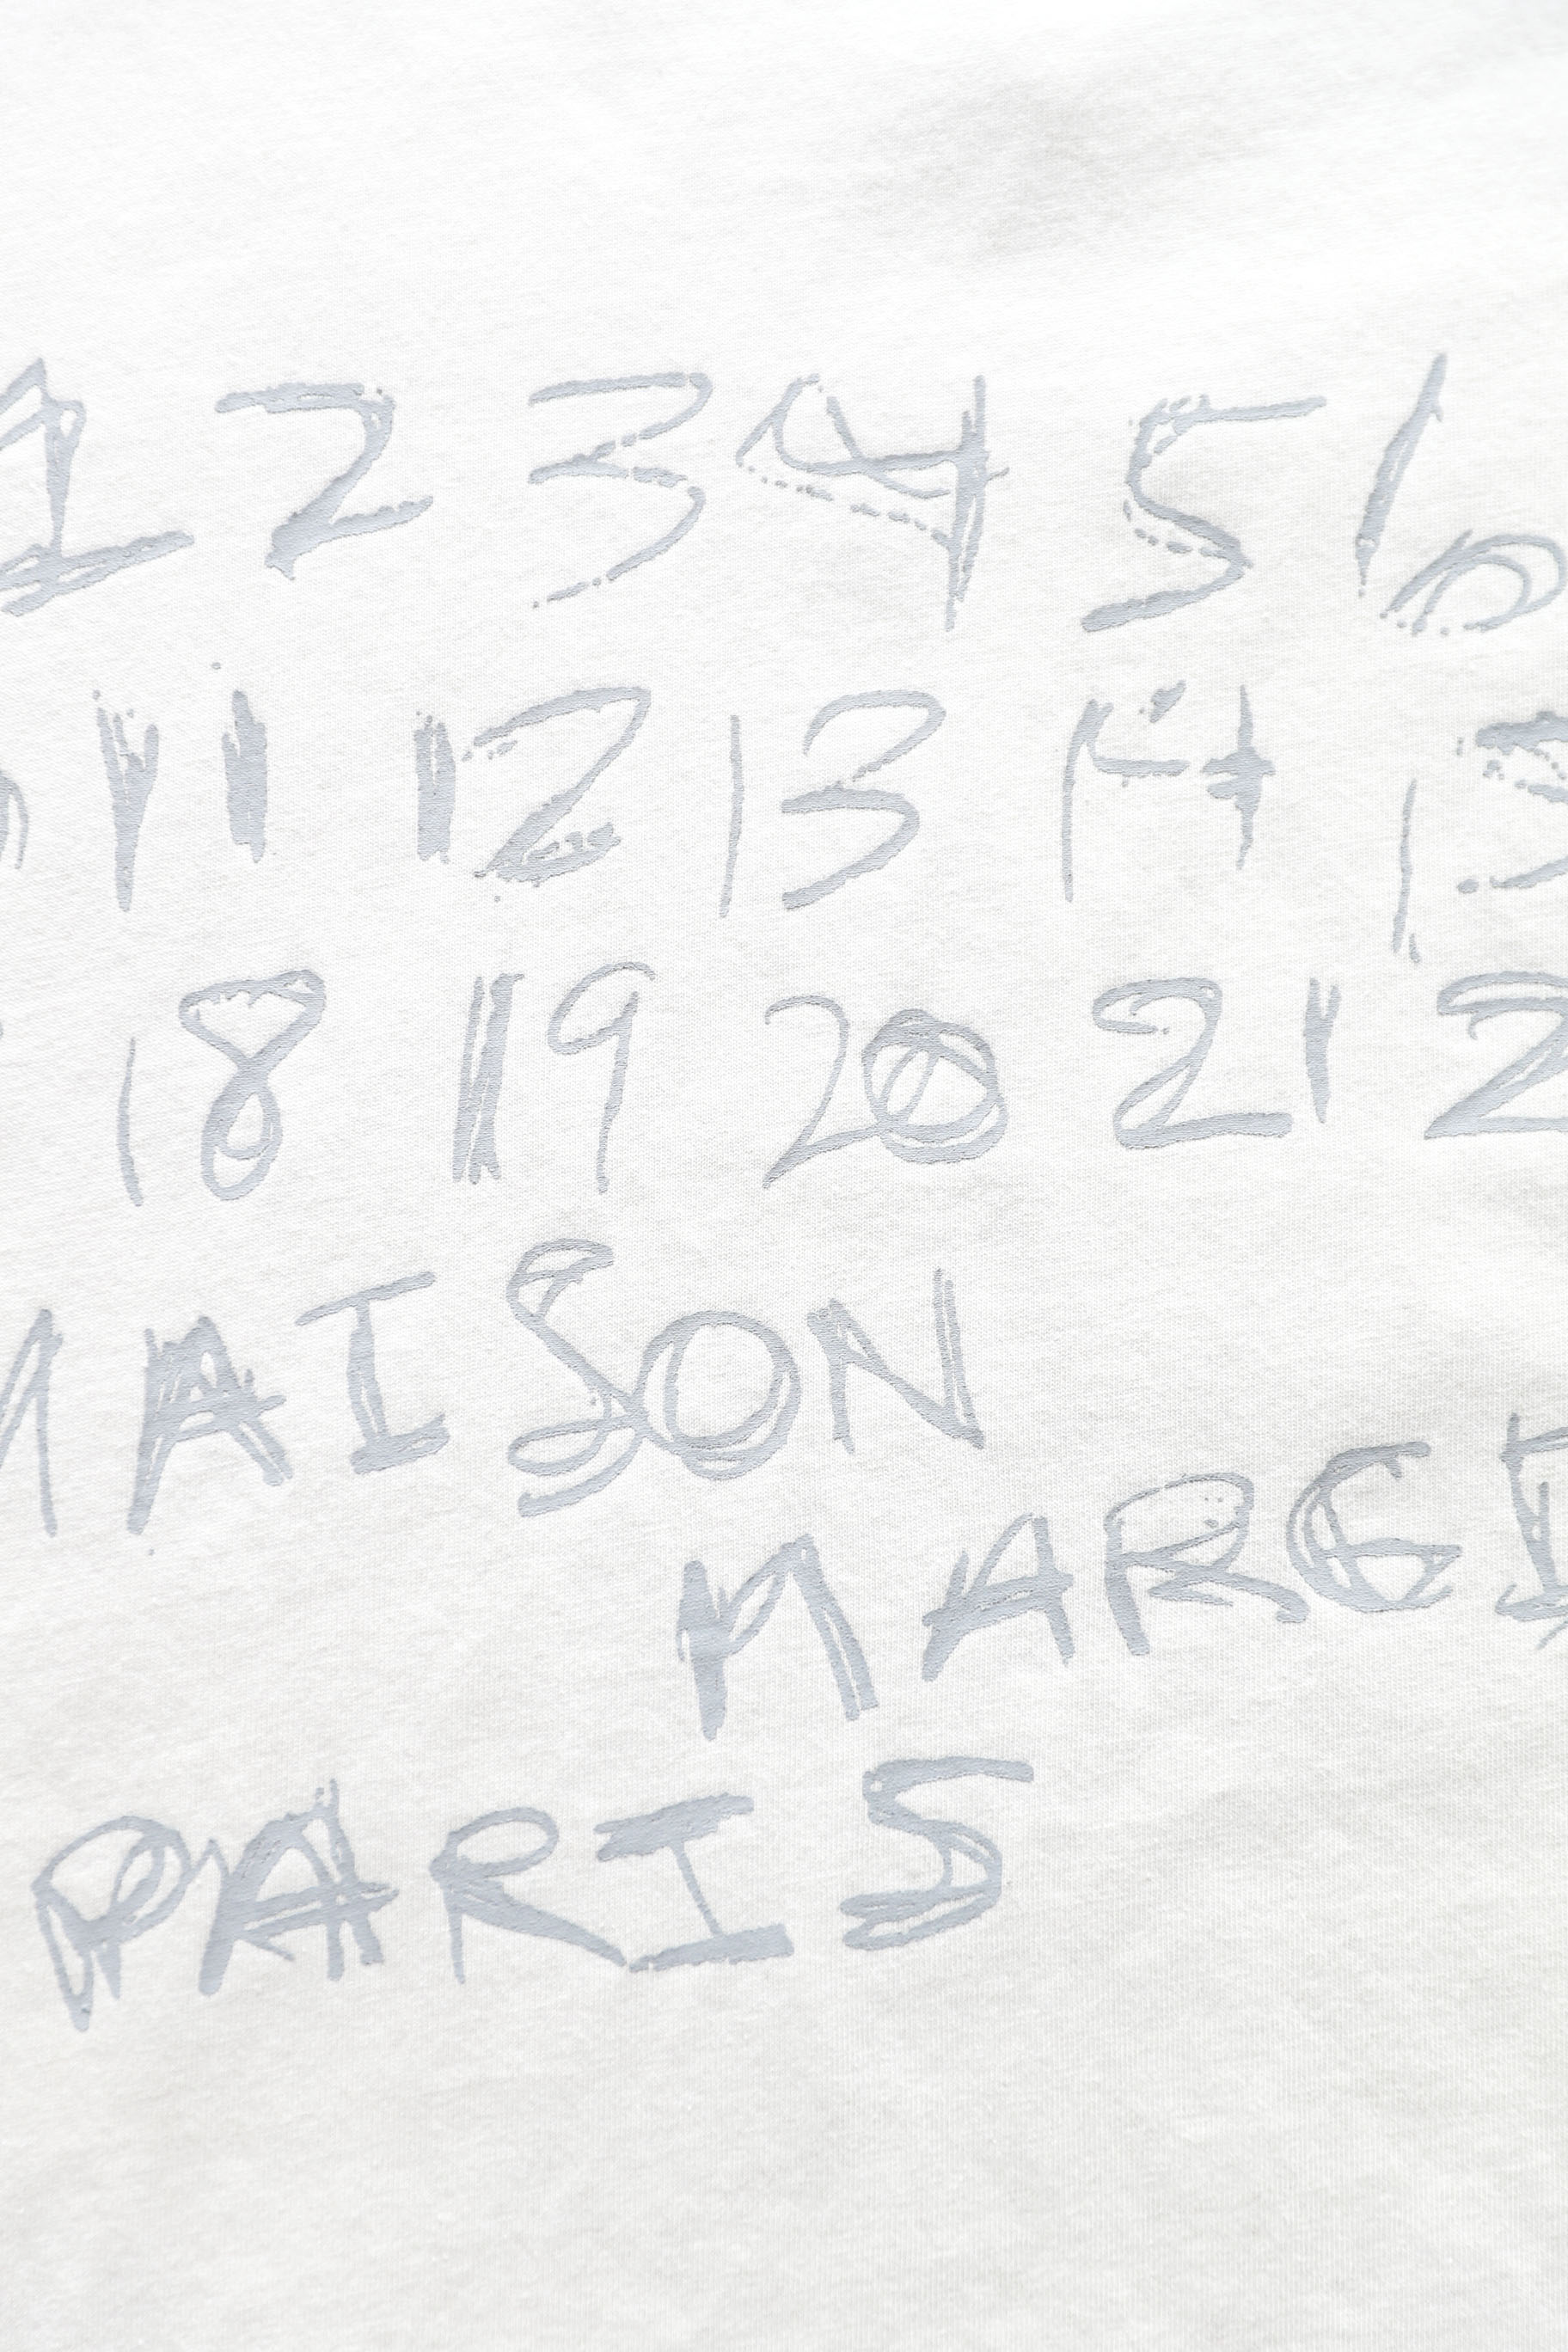 1 2 3 4 5 6
11 12 13 14 15
18 19 20 21 2
MAISON
MARGI
PARIS